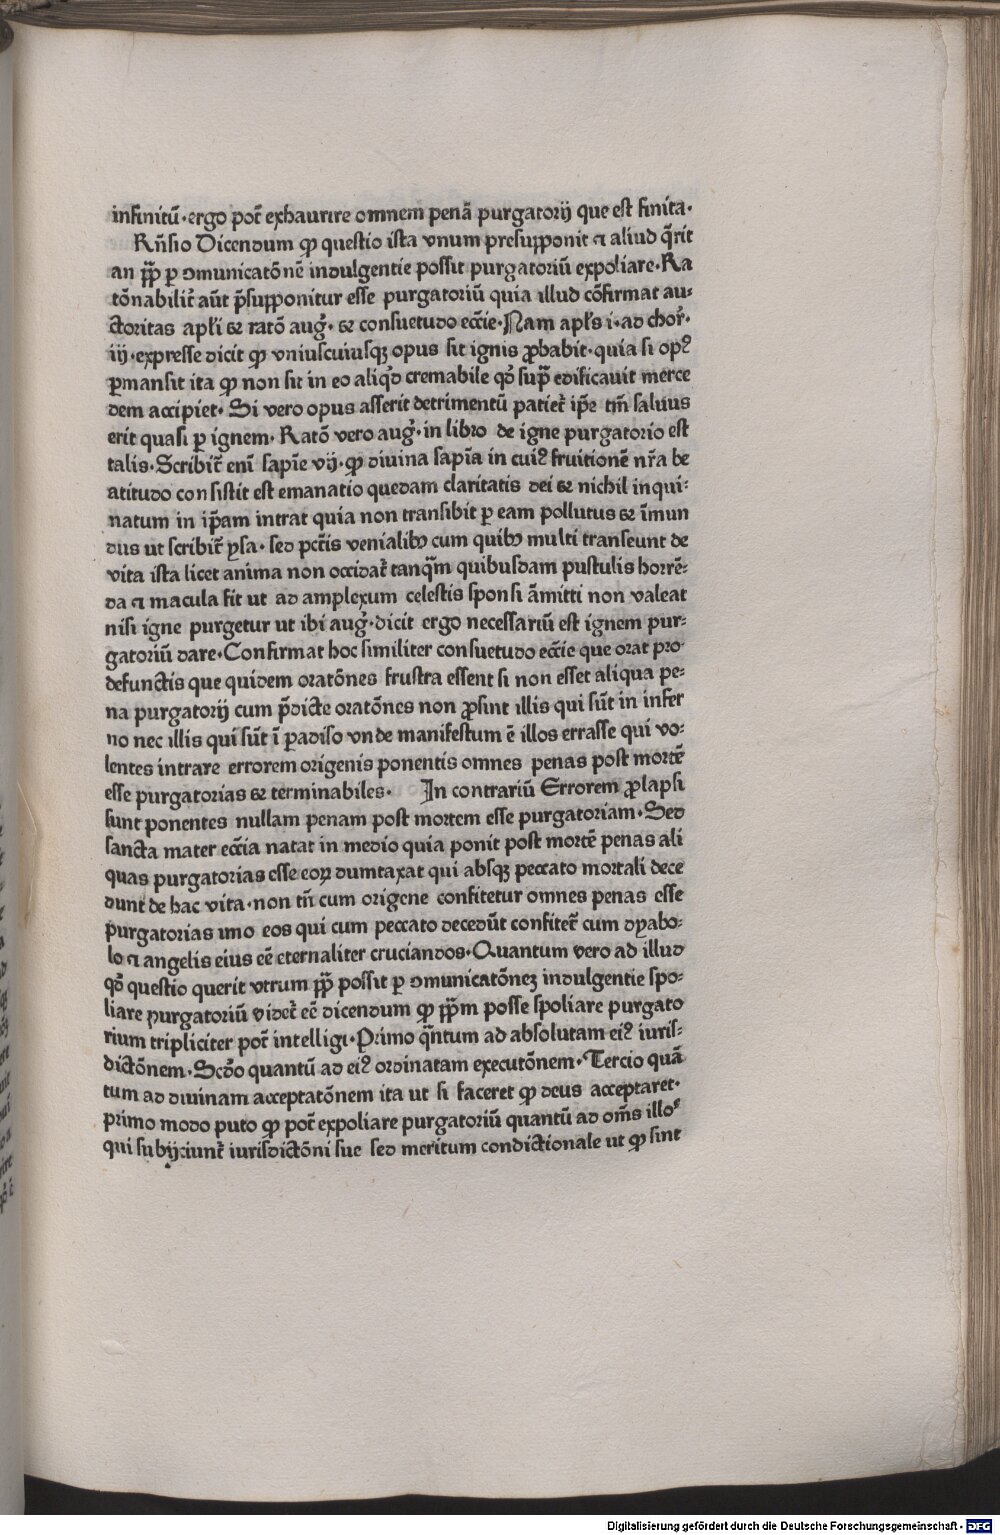 infinitū·ergo pot̄ exhaurire omnem penā purgatorij que est finita·
Rn̄sio Dicendum ꝙ questio ista vnum presupponit ⁊ aliud q̄rit
an pp̄ ꝑ ꝯmunicatōnē indulgentie possit purgatoriū expoliare·Ra
tōnabilit̄ aūt p̄supponitur esse purgatoriū quia illud cōfirmat au⸗
ctoritas apl̄i & ratō auḡ· & consuetudo ecc̄ie·Nam apl̄s i·ad chor̄·
iij·expresse dicit ꝙ vniuscuiusqꝫ opus sit ignis ꝓbabit·quia si opꝰ
ꝑmansit ita ꝙ non sit in eo aliqd̄ cremabile qd̄ sup̄ edificauit merce
dem accipiet· Si vero opus asserit detrimentū patiet̄ ip̄e tm̄ saluus
erit quasi ꝑ ignem· Ratō vero auḡ·in libro de igne purgatorio est
talis·Scribit̄ eni̅ sapīe vij·ꝙ diuina sapīa in cuiꝰ fruitionē nr̄a be
atitudo consistit est emanatio quedam claritatis dei & nichil inqui⸗
natum in ip̄am intrat quia non transibit ꝑ eam pollutus & īmun
dus ut scribit̄ ysa· sed pct̄is venialibꝫ cum quibꝫ multi transeunt de
vita ista licet anima non occidat̄ tanq̄m quibusdam pustulis horrē⸗
da ⁊ macula fit ut ad amplexum celestis sponsi āmitti non valeat
nisi igne purgetur ut ibi auḡ·dicit ergo necessariū est ignem pur⸗
gatoriū dare·Confirmat hoc similiter consuetudo ecc̄ie que orat pro⸗
defunctis que quidem oratōnes frustra essent si non esset aliqua pe⸗
na purgatorij cum p̄dicte oratōnes non ꝓsint illis qui sūt in infer
no nec illis qui sūt ī ꝑadiso vnde manifestum ē illos errasse qui vo⸗
lentes intrare errorem origenis ponentis omnes penas post mortē
esse purgatorias & terminabiles· In contrariū Errorem ꝓlapsi
sunt ponentes nullam penam post mortem esse purgatoriam·Sed
sancta mater ecc̄ia natat in medio quia ponit post mortē penas ali
quas purgatorias esse eoꝝ dumtaxat qui absqꝫ peccato mortali dece
dunt de hac vita·non tn̄ cum origene confitetur omnes penas esse
purgatorias imo eos qui cum peccato decedūt confitet̄ cum dyabo⸗
lo ⁊ angelis eius eē eternaliter cruciandos·Quantum vero ad illud
qd̄ questio querit vtrum pp̄ possit ꝑ ꝯmunicatōneꝫ indulgentie spo⸗
liare purgatoriū videt̄ eē dicendum ꝙ pp̄m posse spoliare purgato
rium tripliciter pot̄ intelligi·Primo q̄ntum ad absolutam eiꝰ iuris⸗
dictōnem·Scd̄o quantū ad eiꝰ ordinatam executōnem·Tercio quā
tum ad diuinam acceptatōnem ita ut si faceret ꝙ deus acceptaret·
primo modo puto ꝙ pot̄ expoliare purgatoriū quantū ad om̄s illoˢ
qui subijciunt̄ iurisdictōni sue sed meritum condictionale ut ꝙ sint
Digitalisierung gefördert durch die Deutsche Forschungsgemeinschaft - DFG